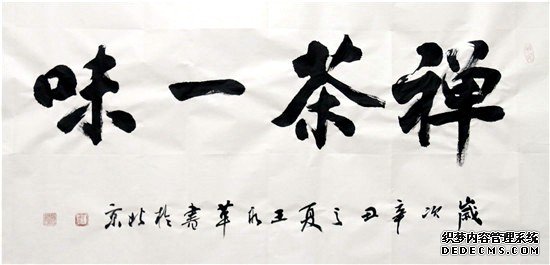 禅茶一味
歲次辛丑之夏王永革書於北京
织梦内容管理系统
DEDECMS.COM